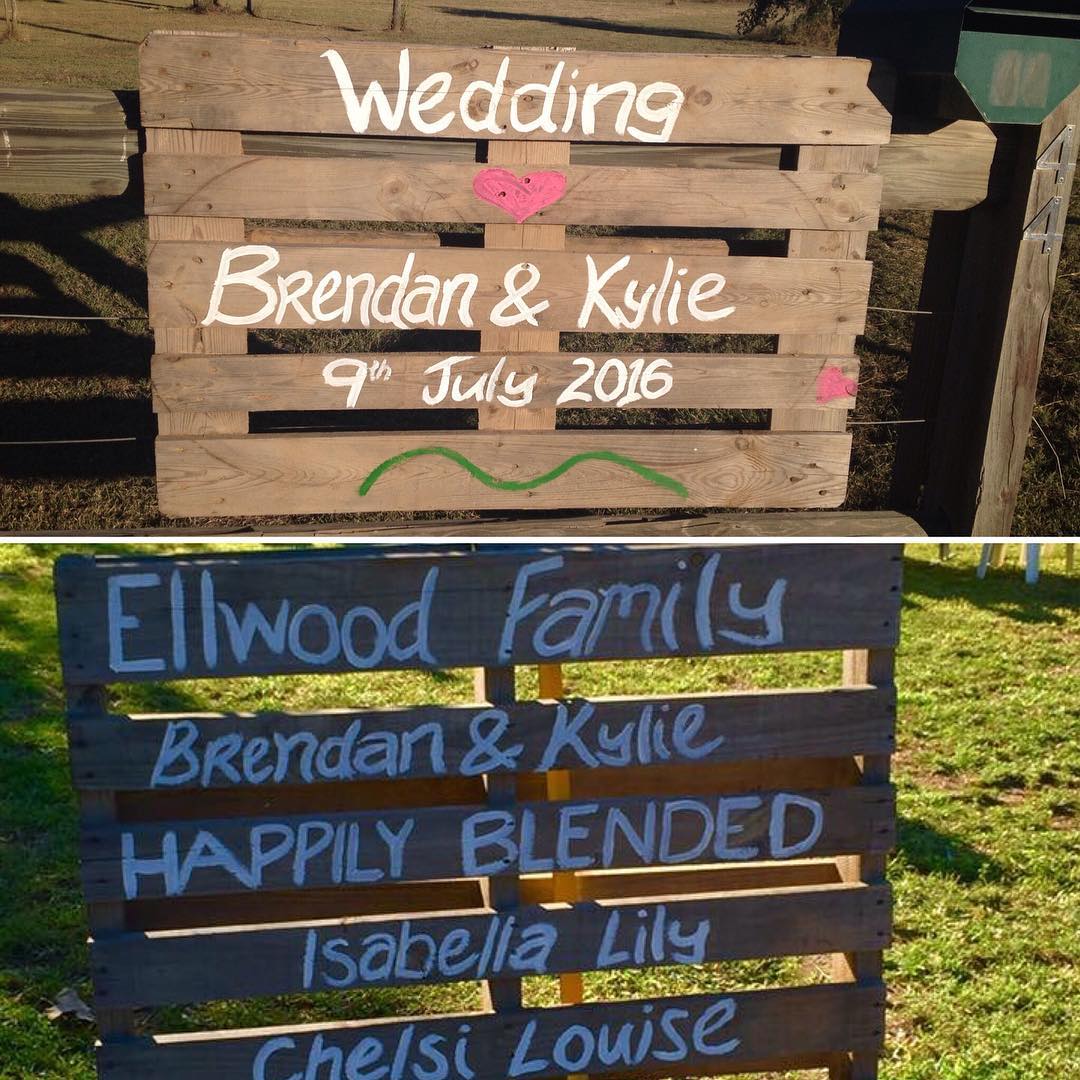 Wedding
Brendan & Kylie
9th July 2016
Ellwood Family
Brendan & Kylie
HAPPILY BLENDED
Isabella Lily
Chelsi Louise